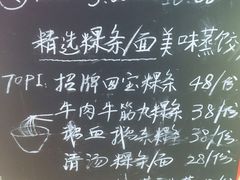 精选粿条/面 美味蒸饺
TOP1: 招牌四宝粿条 48/份
牛肉牛筋丸粿条 38/份
粿条 38/份
清汤粿条/面 28/份